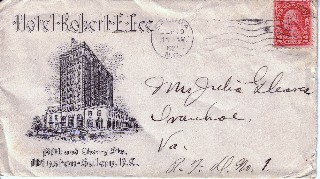 Hotel Robert E. Lee
Mrs Julia
Ivanhoe,
Va.
R. F. D. No. 1.
Fifth and Cherry Sts.
Winston-Salem, N.C.